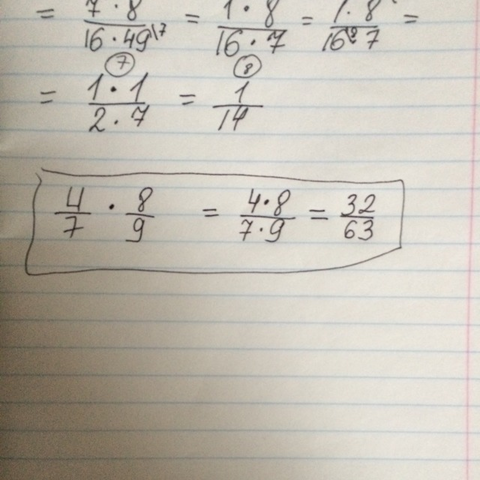 = 7 · 8 / 16 · 49 \7 = 1 · 8 / 16 · 7 = 1 · 8 / 16 2 · 7 =
7 8
= 1 · 1 / 2 · 7 = 1 / 14
4 / 7 · 8 / 9 = 4 · 8 / 7 · 9 = 32 / 63